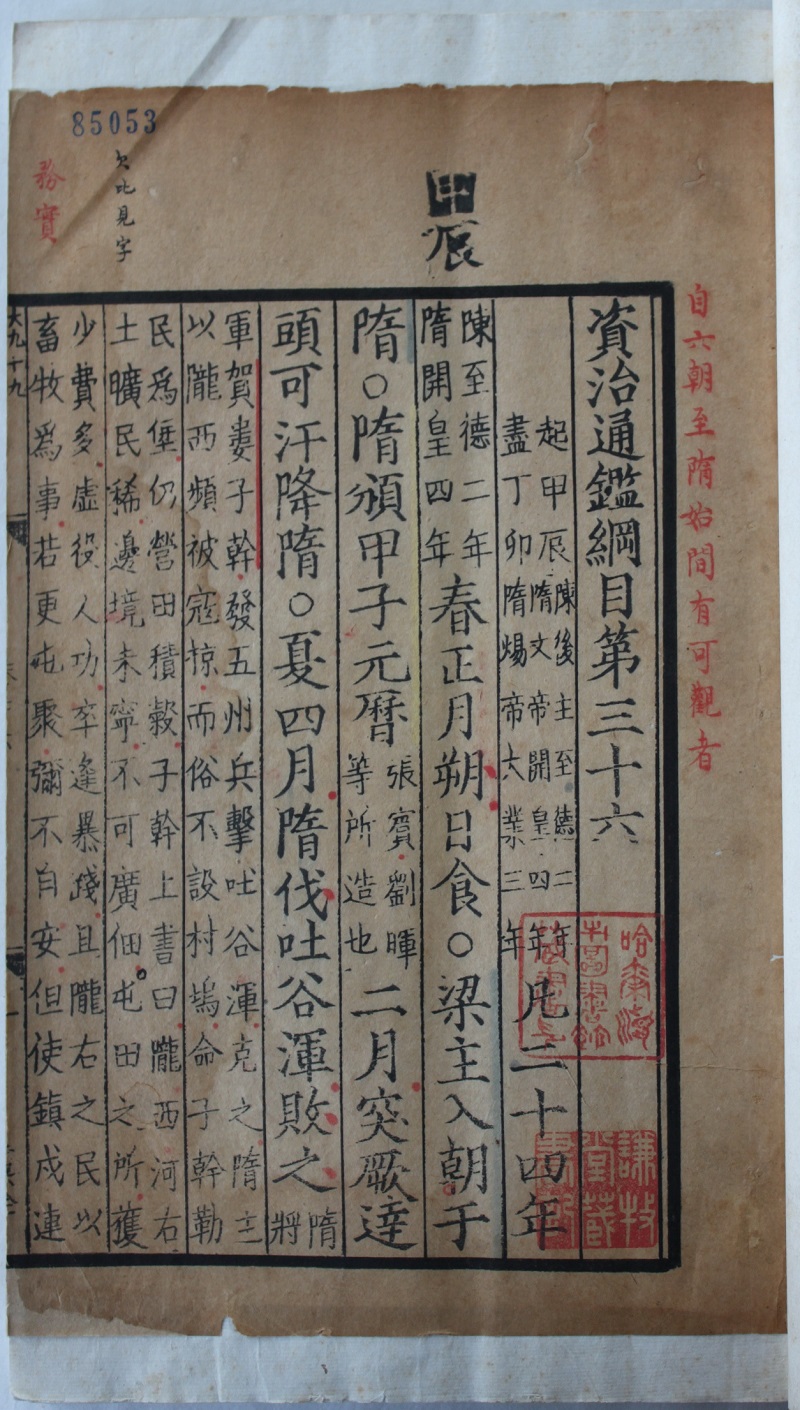 85053
自六朝至隋始間有可觀者
資治通鑑綱目第三十六
起甲辰陳後主至德二年隋文帝開皇四年
盡丁卯隋煬帝大業三年凡二十四年
甲辰
陳至德二年
隋開皇四年
春正月朔日食○梁主入朝于
隋○隋頒甲子元曆
張賓劉暉
等所造也
二月突厥達
頭可汗降隋○夏四月隋伐吐谷渾敗之
隋
將
軍賀婁子幹發五州兵擊吐谷渾克之隋主
以隴西頻被寇掠而俗不設村塢命子幹勒
民爲堡仍營田積穀子幹上書曰隴西河右
土曠民稀邊境未寧不可廣佃屯田之所獲
少費多虛役人功卒逢暴踐且隴右之民以
畜牧爲事若更屯聚彌不自安但使鎮戍連
欠此見字
務實